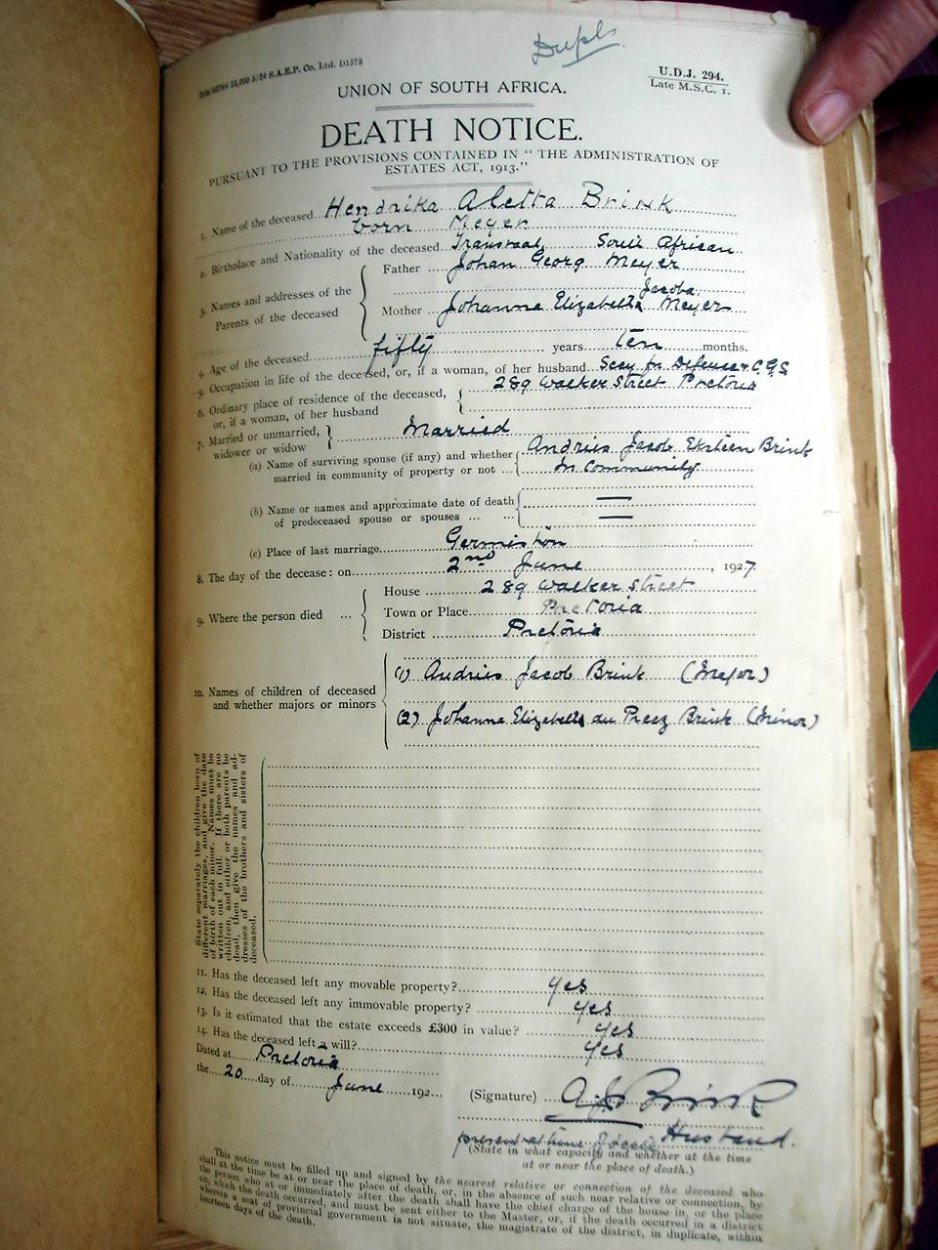 Dupl.
25,000 5/24 S.A.E.P. Co. Ltd. D1578
U.D.J. 294.
Late M.S.C. 1.
UNION OF SOUTH AFRICA.
DEATH NOTICE.
PURSUANT TO THE PROVISIONS CONTAINED IN "THE ADMINISTRATION OF
ESTATES ACT, 1913."
1. Name of the deceased Hendrika Aletta Brink
born Meyer
2. Birthplace and Nationality of the deceased Transvaal, South African
3. Names and addresses of the Parents of the deceased
Father Johan Georg Meyer
Jacoba
Mother Johanna Elizabetta Meyer
4. Age of the deceased fifty years ten months.
5. Occupation in life of the deceased, or, if a woman, of her husband Secy for Defence & C.G.S
6. Ordinary place of residence of the deceased, or, if a woman, of her husband
289 Walker Street Pretoria
7. Married or unmarried, widower or widow
Married
(a) Name of surviving spouse (if any) and whether married in community of property or not
Andries Jacob Eksteen Brink
In Community
(b) Name or names and approximate date of death of predeceased spouse or spouses ... ...
—
—
(c) Place of last marriage Germiston
8. The day of the decease: on 2nd June, 1927
9. Where the person died ...
House 289 Walker Street
Town or Place Pretoria
District Pretoria
10. Names of children of deceased and whether majors or minors
(1) Andries Jacob Brink (Major)
(2) Johanna Elizabetta du Preez Brink (Minor)
State separately the children born of
different marriages, and give the date
of birth of each minor. Names must be
written out in full. If there are no
children, and either or both parents be
dead, then give the names and ad-
dresses of the brothers and sisters of
deceased.
11. Has the deceased left any movable property? Yes
12. Has the deceased left any immovable property? Yes
13. Is it estimated that the estate exceeds £300 in value? Yes
14. Has the deceased left a will? Yes
Dated at Pretoria
the 20 day of June 192
(Signature) A J E Brink
present at time of death Husband.
(State in what capacity and whether at the time
at or near the place of death.)
This notice must be filled up and signed by the nearest relative or connection of the deceased who
shall at the time be at or near the place of death, or, in the absence of such near relative or connection, by
the person who at or immediately after the death shall have the chief charge of the house in, or the place
on, which the death occurred, and must be sent either to the Master, or, if the death occurred in a district
wherein a seat of provincial government is not situate, the magistrate of the district, in duplicate, within
fourteen days of the death.